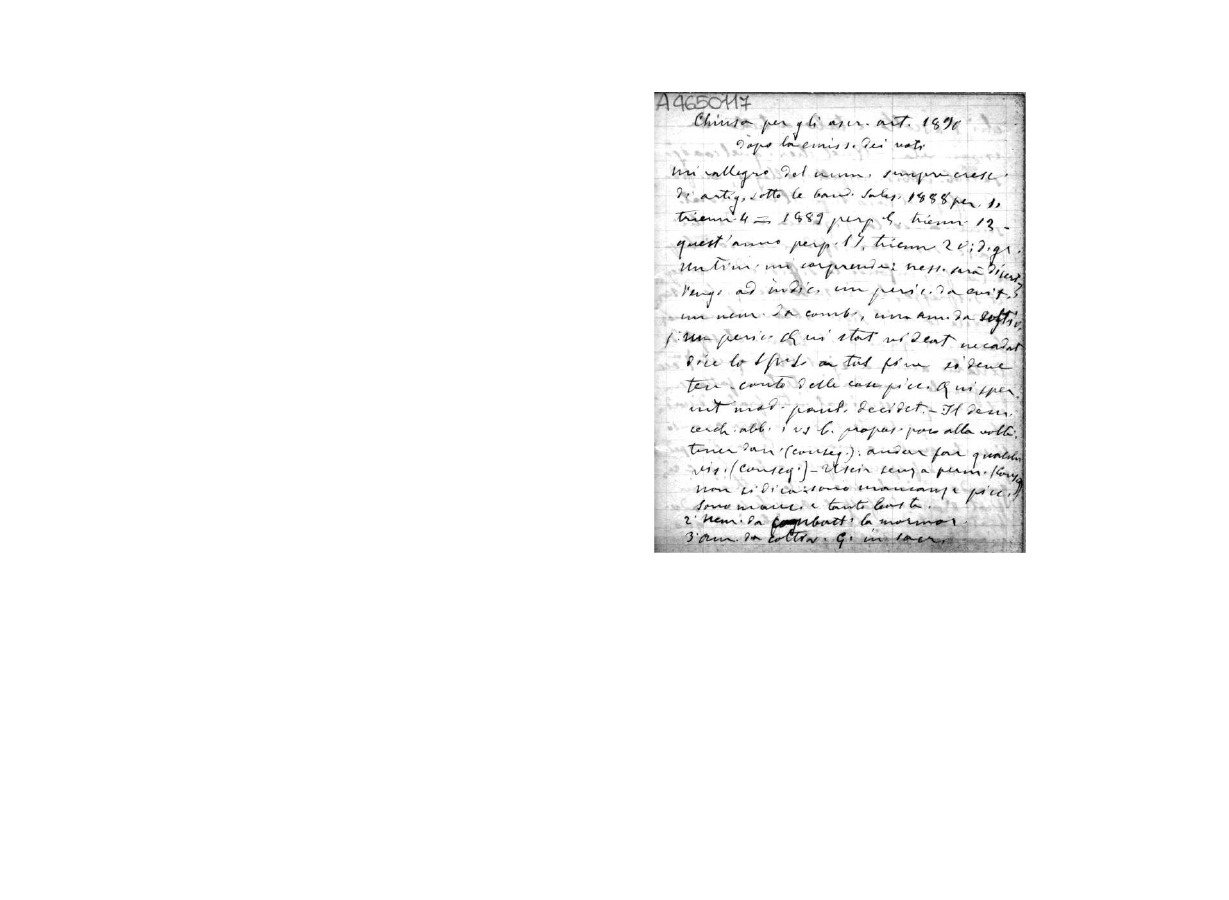 A4650117
Chiusa per gli ascr. art. 1890
dopo la emiss. dei voti
mi rallegro del num. sempre cresc.
di artig. sotto le band. Sales. 1888 per. 1,
trienn. 4 = 1889 perp. 5, trienn. 13 -
quest'anno perp. 17, trienn. 20; d. gr.
sentim. mi sorprende: ness. sarà disert
Vengo ad indic. un peric. da evit.
un nem. da comb., un am. da coltiv.
1° un peric. Qui stat videat ne cadat
dice lo Sp. S. a tal fine si deve
ten. conto delle cose picc. Qui sper
nit mod. paul. decidet. - Il dem.
cerch. abb. propos. poco alla volta
tener dan. (conseg.). andar far qualche
vis. (conseg.) - Uscir senza perm. (cons.)
non si dica: sono mancanze picc.
sono manc. e tanto basta.
2° Nem. da combatt. la mormor.
3° am. da coltiv. G. in sacr.